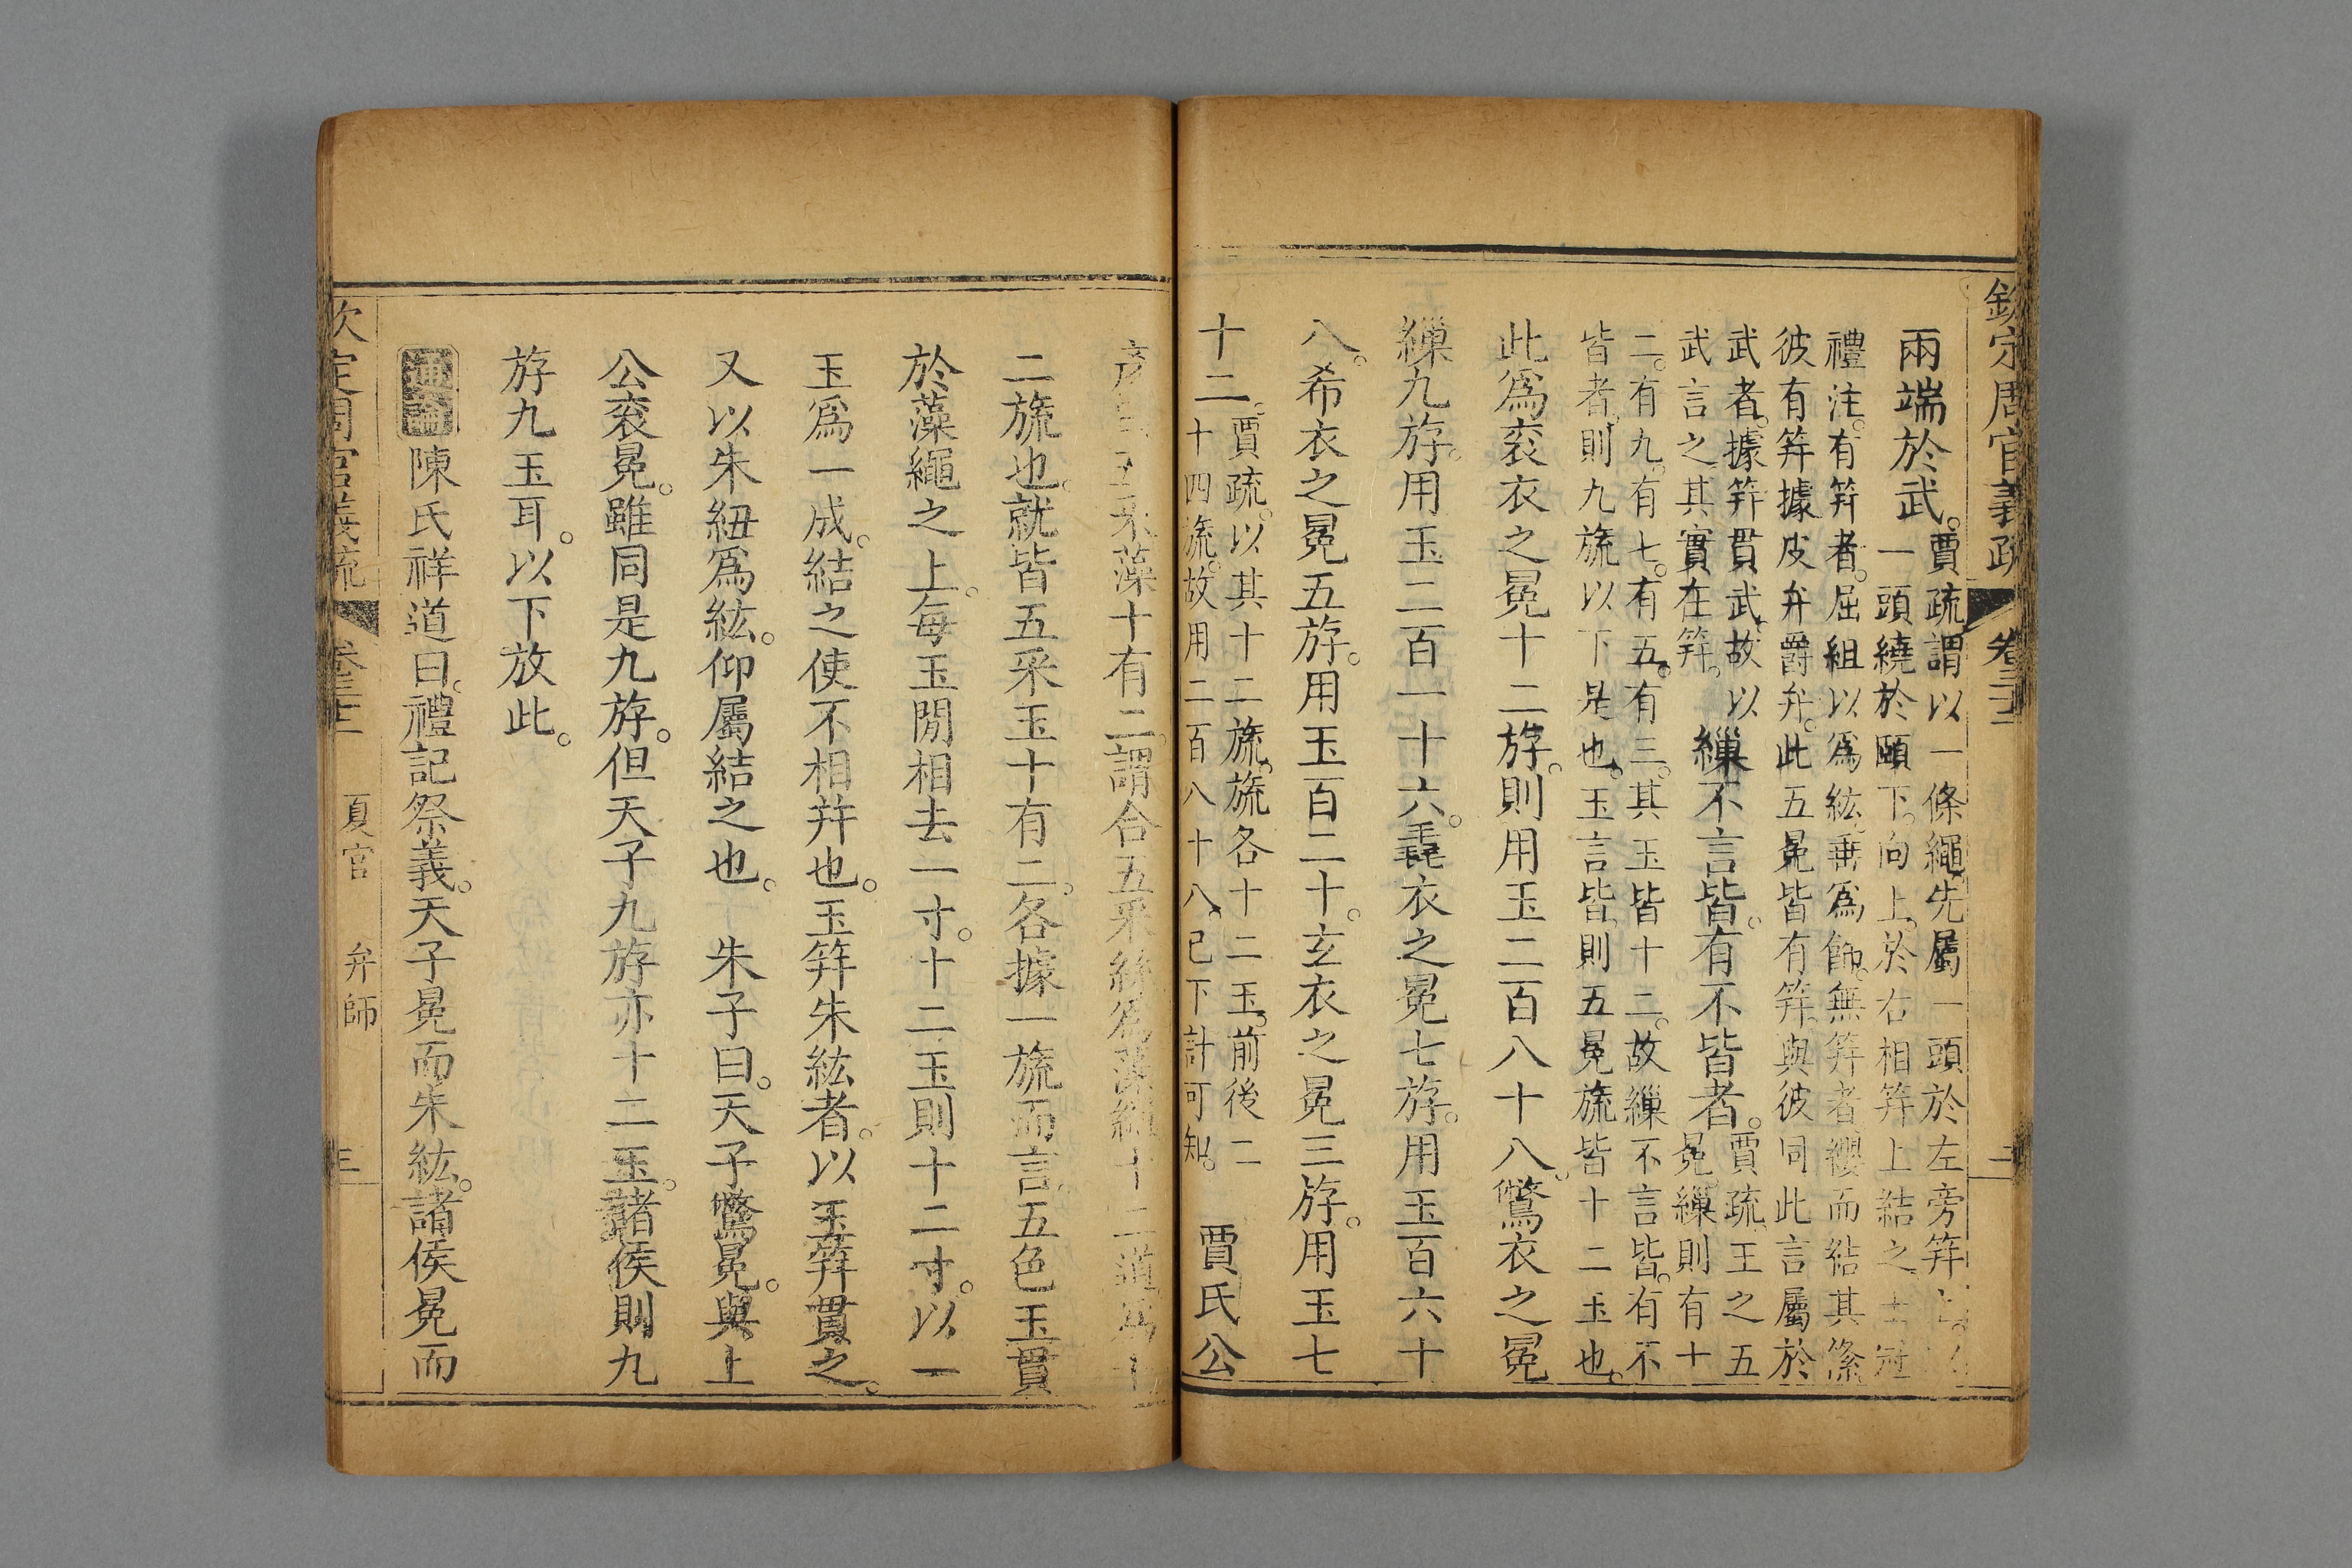 欽定周官義疏 卷三十二 二
兩端於武。賈疏謂以一條繩。先屬一頭於左旁笄
一頭繞於頤下。向上。於右相笄上結之
禮注。有笄者。屈組以爲紘。垂爲飾。無笄者。纓而結其絛。
彼有笄據皮弁爵弁。此五冕皆有笄。與彼同此言屬於
武者。據笄貫武。故以
武言之。其實在笄。
繅不言皆。有不皆者。
賈疏。王之五
冕。繅則有十
二。有九。有七。有五。有三。其玉皆十二。故繅不言皆。有不
皆者。則九旒以下是也。玉言皆。則五冕旒皆十二玉也。
此爲衮衣之冕十二斿。則用玉二百八十八。鷩衣之冕
繅九斿。用玉二百一十六。毳衣之冕七斿。用玉百六十
八。希衣之冕五斿。用玉百二十。玄衣之冕三斿。用玉七
十二。
賈疏。以其十二旒。旒各十二玉。前後二
十四旒。故用二百八十八。已下計可知。
賈氏公
彥曰五采藻十有二。謂合五采絲爲藻繩十二道爲十
二旒也。就皆五采玉十有二。各據一旒而言五色玉貫
於藻繩之上。每玉閒相去一寸。十二玉則十二寸。以一
玉爲一成。結之使不相幷也。玉笄朱紘者。以玉笄貫之。
又以朱組爲紘。仰屬結之也。 朱子曰。天子鷩冕。與上
公衮冕。雖同是九斿。但天子九斿亦十二玉。諸侯則九
斿九玉耳。以下放此。
通論陳氏祥道曰。禮記祭義。天子冕而朱紘。諸侯冕而
欽定周官義疏 卷三十二 夏官 弁師 三